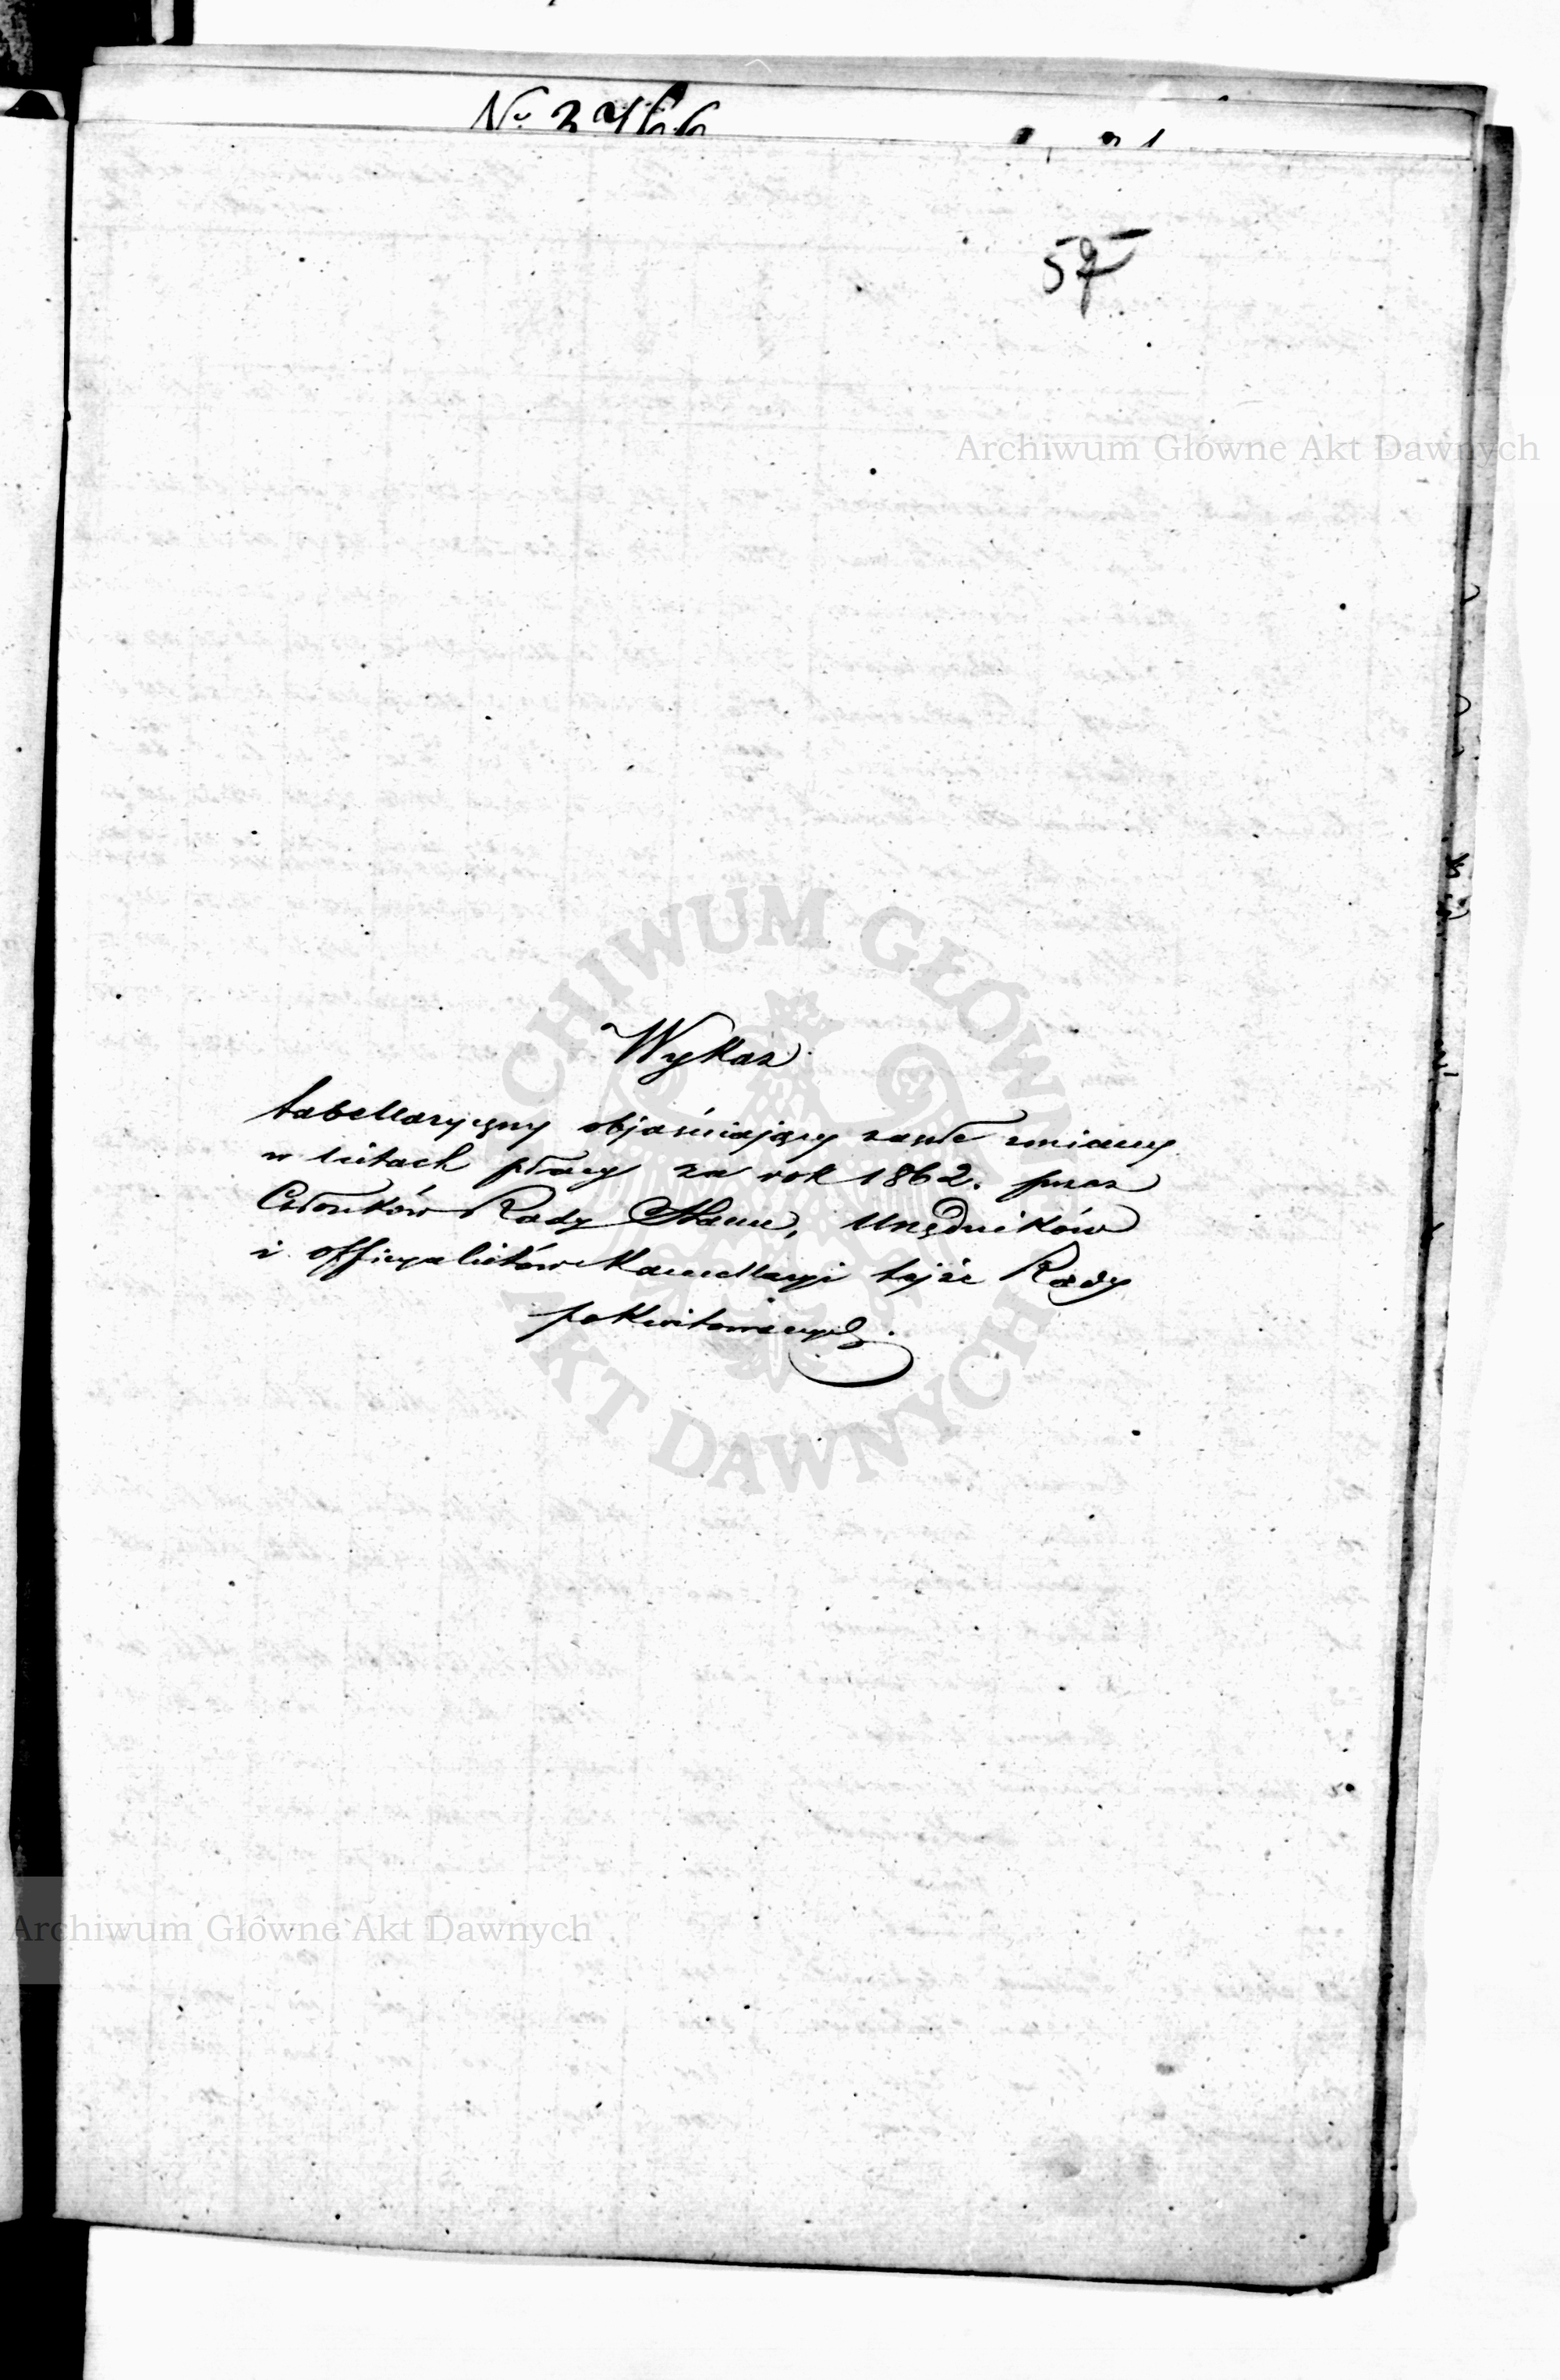 57
Archiwum Główne Akt Dawnych
Wykaz
tabellaryczny objaśniający zaszłe zmiany
w listach płacy za rok 1862. przez
Członków Rady Stanu, Urzędników
i officyalistów Kancellaryi tejże Rady
pokwitowanych.
ARCHIWUM GŁÓWNE
AKT DAWNYCH
Archiwum Główne Akt Dawnych